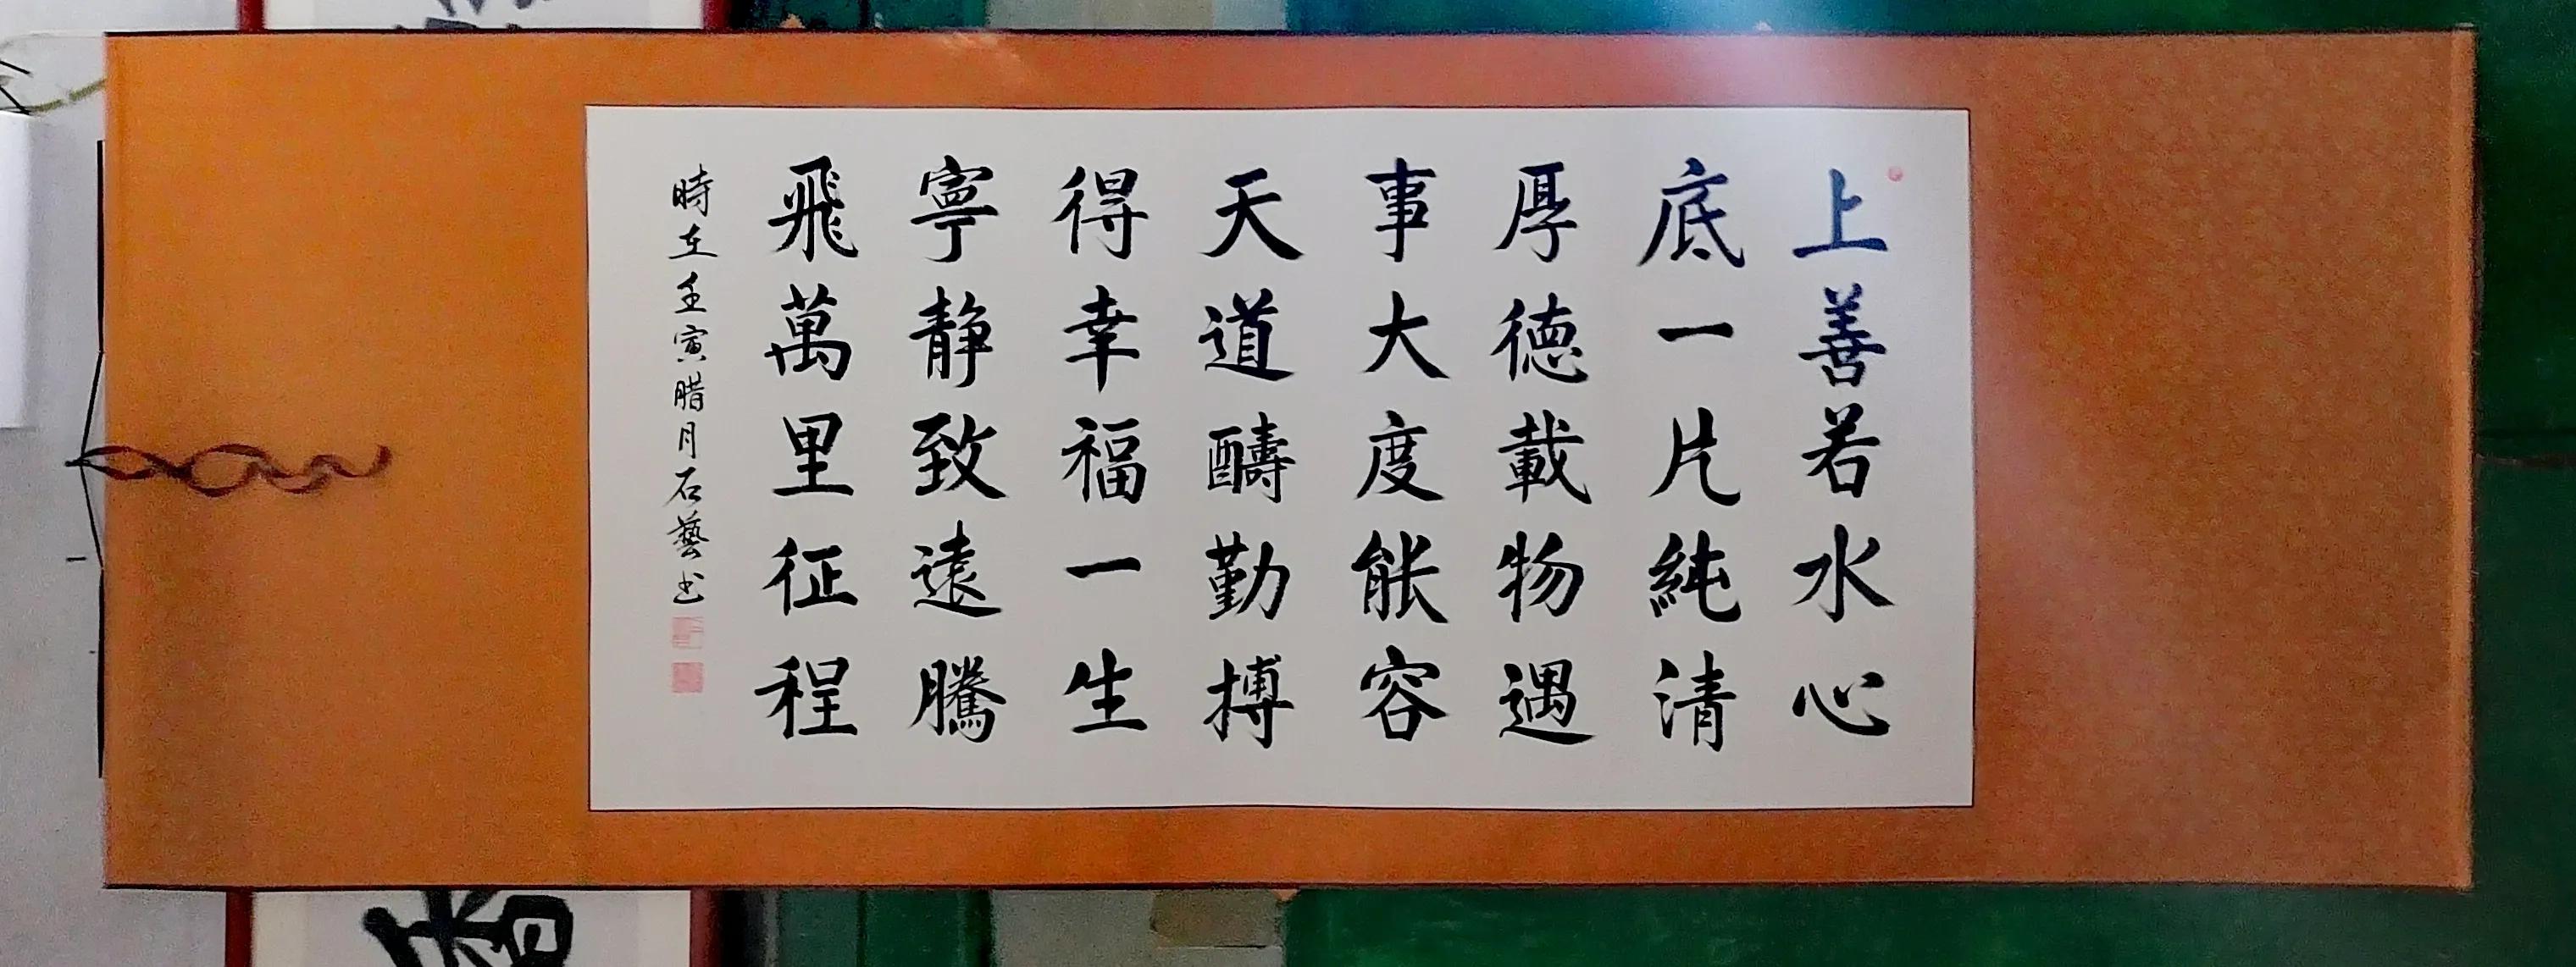 上善若水心
底一片純清
厚德載物遇
事大度能容
天道醻勤搏
得幸福一生
寧静致遠騰
飛萬里征程
時在壬寅腊月石藝书